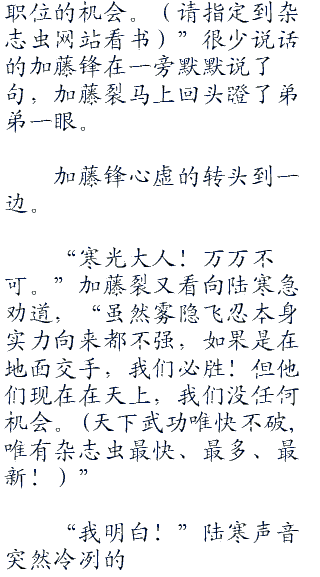 职位的机会。（请指定到杂
志虫网站看书）”很少说话
的加藤锋在一旁默默说了
句，加藤裂马上回头瞪了弟
弟一眼。
加藤锋心虚的转头到一
边。
“寒光大人！万万不
可。”加藤裂又看向陆寒急
劝道，“虽然雾隐飞忍本身
实力向来都不强，如果是在
地面交手，我们必胜！但他
们现在在天上，我们没任何
机会。(天下武功唯快不破,
唯有杂志虫最快、最多、最
新！）”
“我明白！”陆寒声音
突然冷冽的